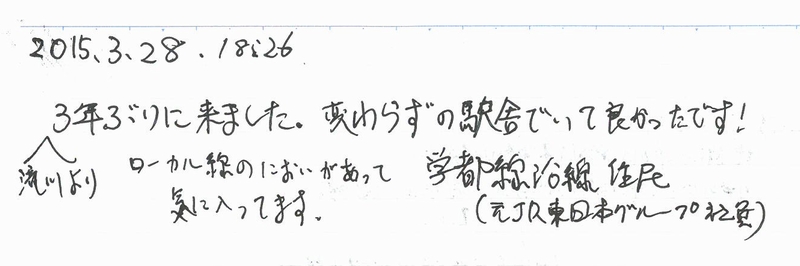 2015.3.28.18:26
3年ぶりに来ました。変わらずの駅舎でいて良かったです!
流川より
ローカル線のにおいがあって
気に入ってます。
学都線沿線住民
(元JR東日本グループ社員)